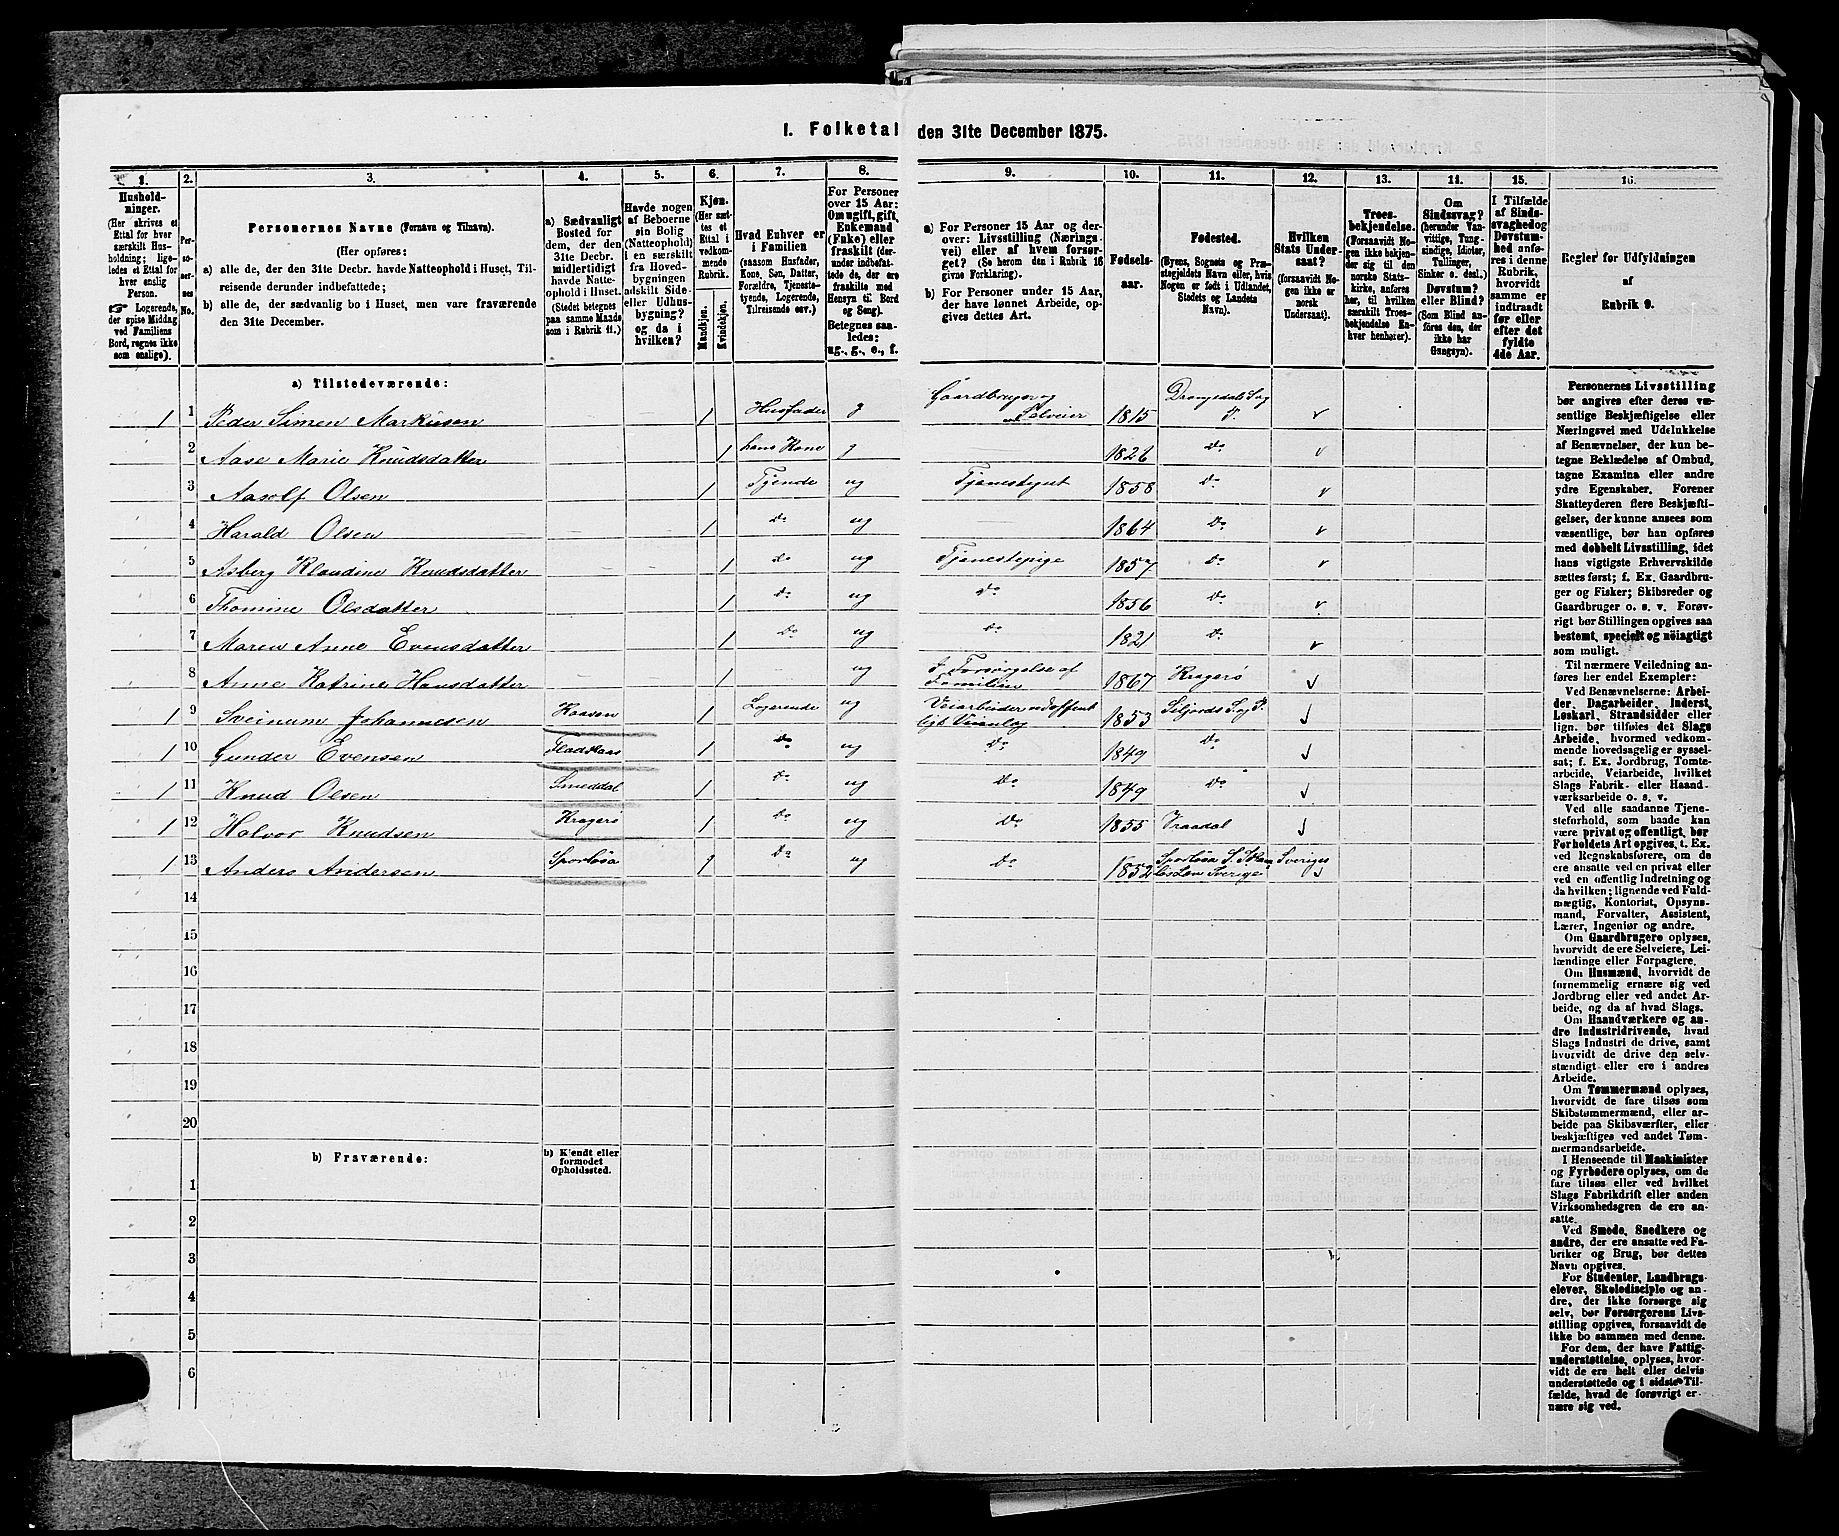 I. Folketal den 31te December 1875.
1. 2. 3. 4. 5. 6. 7. 8. 9. 10. 11. 12. 13. 14. 15. 16.
Hushold-
ninger.
(Her skrives et
Ettal for hver
særskilt Hus-
holdning; lige-
ledes et Ettal for
hver enslig
Person.
☞ Logerende,
der spise Middag
ved Familiens
Bord, regnes ikke
som enslige).
Per-
soner-
nes
No.
Personernes Navne (Fornavn og Tilnavn).
(Her opføres:
a) alle de, der den 31te Decbr. havde Natteophold i Huset, Til-
reisende derunder indbefattede;
b) alle de, der sædvanlig bo i Huset, men vare fraværende
den 31te December.
a) Sædvanligt
Bosted for
dem, der den
31te Decbr.
midlertidigt
havde Natte-
ophold i Huset.
(Stedet betegnes
paa samme Maade
som i Rubrik 11.)
Havde nogen
af Beboerne
sin Bolig
(Natteophold)
i en særskilt
fra Hoved-
bygningen
adskilt Side-
eller Udhus-
bygning?
og da i
hvilken?
Kjøn.
(Her sæt-
tes et
Ettal i
vedkom-
mende
Rubrik.
Mandkjøn.
Kvindekjøn.
Hvad Enhver er
i Familien
(saasom Husfader,
Kone, Søn, Datter,
Forældre, Tjeneste-
tyende, Logerende,
Tilreisende osv.)
For Personer
over 15 Aar:
Om ugift, gift,
Enkemand
(Enke) eller
fraskilt (der-
under indbefat-
tede de, der ere
fraskilte med
Hensyn til Bord
og Seng).
Betegnes saa-
ledes:
ug., g., e., f.
a) For Personer 15 Aar og der-
over: Livsstilling (Nærings-
vei) eller af hvem forsør-
get? (Se herom den i Rubrik 16
givne Forklaring).
b) For Personer under 15 Aar,
der have lønnet Arbeide, op-
gives dettes Art.
Fødsels-
aar.
Fødested.
(Byens, Sognets og Præ-
stegjeldets Navn eller, hvis
Nogen er født i Udlandet,
Stedets og Landets
Navn).
Hvilken
Stats Under-
saat?
(forsaavidt No-
gen ikke er
norsk
Undersaat).
Troes-
bekjendelse.
(Forsaavidt No-
gen ikke bekjen-
der sig til den
norske Stats-
kirke, anføres
her, til hvilken
særskilt Troes-
bekjendelse En-
hver henhører).
Om
Sindssvag?
(herunder Van-
vittige, Tung-
sindige, Idioter,
Tullinger,
Sinker o. desl.)
Døvstum?
eller Blind?
(Som Blind an-
føres den, der
ikke har
Gangsyn).
I Tilfælde
af Sinds-
svaghed og
Døvstum-
hed anfø-
res i denne
Rubrik,
hvorvidt
samme er
indtraadt
før eller
efter det
fyldte
4de Aar.
Regler for Udfyldningen
af
Rubrik 9.
a) Tilstedeværende:
1 1 Peder Simen Markusen 1 Husfader g Gaardbruger og Selveier 1815 Drangedal S og P. v
2 Aase Marie Knudsdatter 1 hans Kone g 1826 Do v
3 Aasolf Olsen 1 Tjende ug Tjenestegut 1858 Do v
4 Harald Olsen 1 do ug 1864 Do v
5 Asberg Klaudine Knudsdatter 1 do ug Tjenestepige 1857 do v
6 Thomine Olsdatter 1 do ug do 1856 do v
7 Maren Anne Evensdatter 1 do ug do 1821 do v
8 Anne Katrine Hansdatter 1 ug I Forsørgelse af Familien 1867 Kragerø v
1 9 Sveinum Johannesen Haasen 1 Logerende ug Veiarbeider ved offent ligt Veianlæg 1853 Seljords S og P. v
1 10 Gunder Evensen 1 do ug do 1849 do v
1 11 Knud Olsen Smeddal 1 do ug do 1849 do v
1 12 Halvor Knudsen Kragerø 1 do ug do 1855 Vraadal v
1 13 Anders Andersen 1 do ug do 1852 Sverige Sveriges v
14
15
16
17
18
19
20
b) Fraværende:
b) Kjendt eller
formodet
Opholdssted.
1
2
3
4
5
6
Personernes Livsstilling
bør angives efter deres væ-
sentlige Beskjæftigelse eller
Næringsvei med Udelukkelse
af Benævnelser, der kun be-
tegne Beklædelse af Ombud,
tagne Examina eller andre
ydre Egenskaber. Forener
Skatteyderen flere Beskjæfti-
gelser, der kunne ansees som
væsentlige, bør han opføres
med dobbelt Livsstilling, idet
hans vigtigste Erhvervskilde
sættes først; f. Ex. Gaardbru-
ger og Fisker; Skibsreder og
Gaardbruger o. s. v. Forøv-
rigt bør Stillingen opgives saa
bestemt, specielt og nöiagtigt
som muligt.
Til nærmere Veiledning an-
føres her endel Exempler:
Ved Benævnelserne: Arbei-
der, Dagarbeider, Inderst,
Løskarl, Strandsidder eller
lign. bør tilføies det Slags
Arbeide, hvormed vedkom-
mende hovedsagelig er syssel-
sat; f. Ex. Jordbrug, Tomte-
arbeide, Veiarbeide, hvilket
Slags Fabrik- eller Haand-
værksarbeide o. s. v.
Ved alle saadanne Tjene-
steforhold, som baade kan
være privat og offentligt, bør
Forholdets Art opgives, t. Ex.
ved Regnskabsførere, om de
ere ansatte ved en privat eller
ved en offentlig Indretning og
da hvilken; lignende ved Fuld-
mægtig, Kontorist, Opsyns-
mand, Forvalter, Assistent,
Lærer, Ingeniør og andre.
Om Gaardbrugere oplyses,
hvorvidt de ere Selveiere, Lei-
lændinge eller Forpagtere.
Om Husmænd, hvorvidt de
fornemmelig ernære sig ved
Jordbrug eller ved andet Ar-
beide, og da af hvad Slags.
Om Haandværkere og an-
dre Industridrivende, hvad
Slags Industri de drive, samt
hvorvidt de drive den selv-
stændigt eller ere i andres
Arbeide.
Om Tømmermænd oplyses,
hvorvidt de fare tilsøs som
Skibstømmermænd, eller ar-
beide paa Skibsværfter, eller
beskjæftiges ved andet Tøm-
mermandsarbeide.
I Henseende til Maskinister
og Fyrbødere oplyses, om de
fare tilsøs eller ved hvilket
Slags Fabrikdrift eller anden
Virksomhedsgren de ere an-
satte.
Ved Smede, Snedkere og
andre, der ere ansatte ved Fa-
briker og Brug, bør dettes
Navn opgives.
For Studenter, Landbrugs-
elever, Skoledisciple og an-
dre, der ikke forsørge sig
selv, bør Forsørgerens Livs-
stilling opgives, forsaavidt de
ikke bo sammen med denne.
For dem, der have Fattig-
understøttelse, oplyses, hvor-
vidt de ere helt eller delvis
understøttede og i sidste Til-
fælde, hvad de forøvrigt er-
nære sig ved.